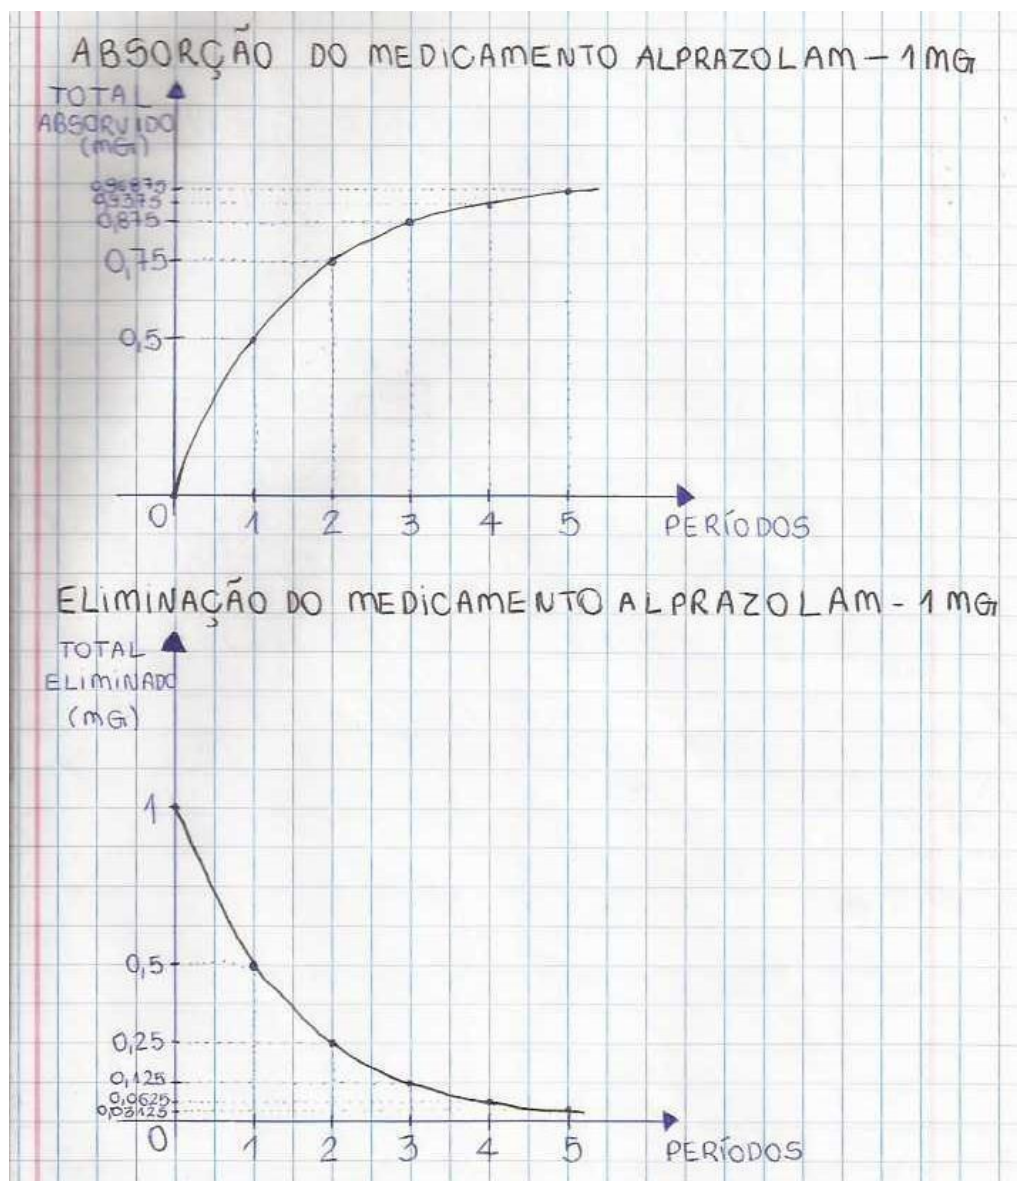 ABSORÇÃO DO MEDICAMENTO ALPRAZOLAM - 1 MG
TOTAL
ABSORVIDO
(MG)
0,96875
0,9375
0,875
0,75
0,5
0 1 2 3 4 5 PERÍODOS
ELIMINAÇÃO DO MEDICAMENTO ALPRAZOLAM - 1 MG
TOTAL
ELIMINADO
(MG)
1
0,5
0,25
0,125
0,0625
0,03125
0 1 2 3 4 5 PERÍODOS